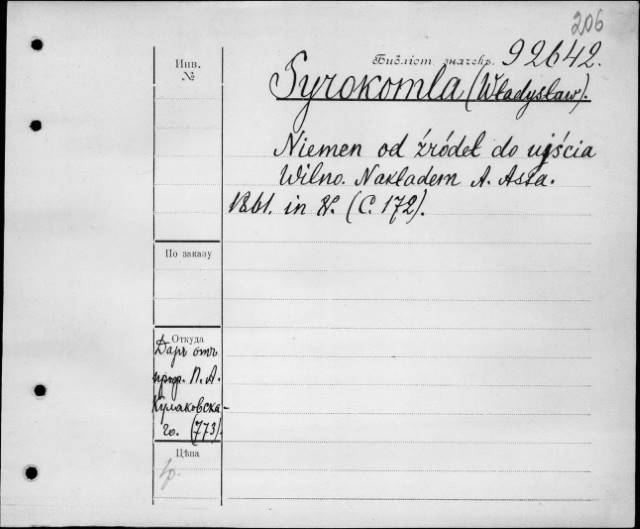 206
Инв.
№
Библіот. значекъ. 92642.
Syrokomla (Władysław).
Niemen od źródeł do ujścia
Wilno. Nakładem A. Assa.
1861. in 8º. (С. 172).
По заказу
Откуда
Даръ отъ
проф. П. А.
Кулаковска-
го. (773).
Цѣна